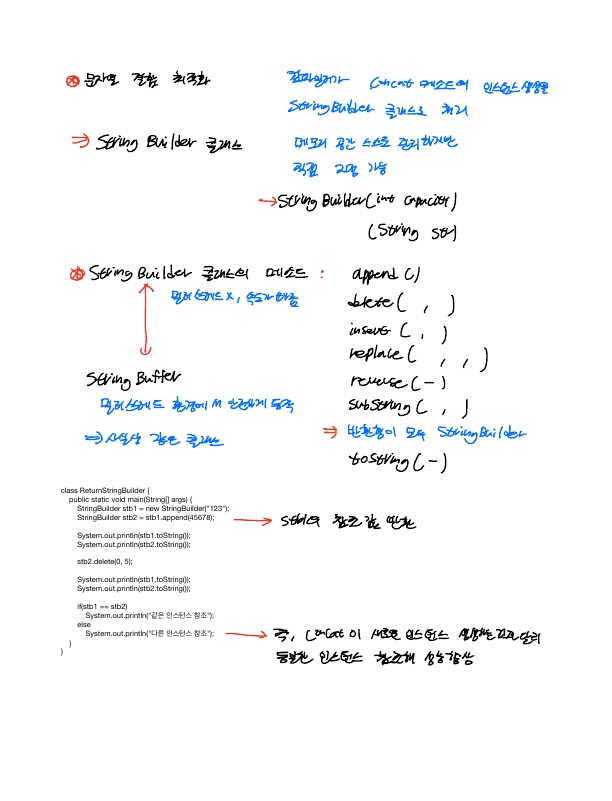 문자열 결합 최적화
컴파일러가 concat 메소드의 인스턴스 생성을
StringBuilder 클래스로 처리
⇒ String Builder 클래스
메모리 공간 스스로 관리하지만
직접 지정 가능
→ String Builder (int capacity)
(String str)
String Builder 클래스의 메소드 :
멀티스레드 X, 속도가 빠름
append ( )
delete ( , )
insert ( , )
replace ( , , )
reverse (-)
subString ( , )
⇒ 반환형이 모두 StringBuilder
toString (-)
String Buffer
멀티스레드 환경에서 안전하게 동작
⇒ 사실상 같은 클래스
class ReturnStringBuilder {
public static void main(String[] args) {
StringBuilder stb1 = new StringBuilder("123");
StringBuilder stb2 = stb1.append(45678);
→ stb1의 참조 값 반환
System.out.println(stb1.toString());
System.out.println(stb2.toString());
stb2.delete(0, 5);
System.out.println(stb1.toString());
System.out.println(stb2.toString());
if(stb1 == stb2)
System.out.println("같은 인스턴스 참조");
else
System.out.println("다른 인스턴스 참조");
}
}
→ 즉, concat이 새로운 인스턴스 생성하는 것과 달리
동일한 인스턴스 참조해 성능향상